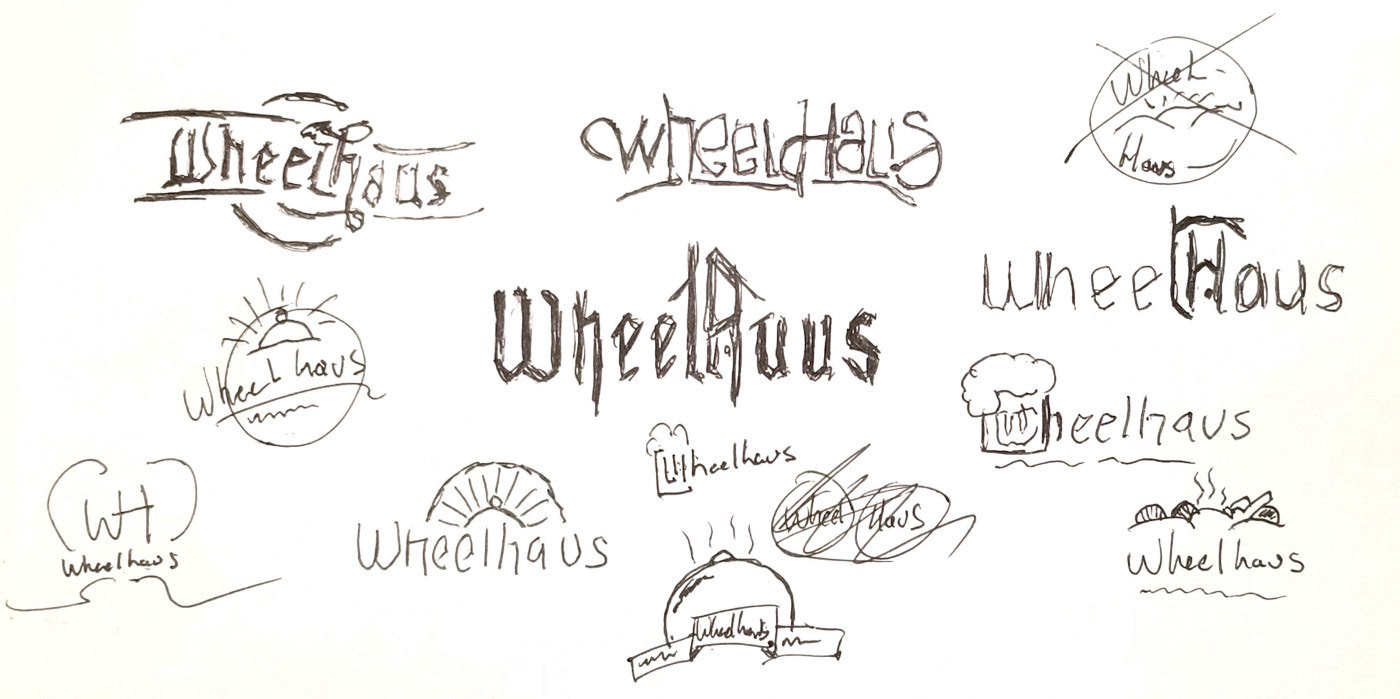 Wheelhaus
WheelHaus
Wheel
Haus
WheelHaus
WheelHaus
Wheelhaus
Wheelhaus
Wheelhaus
WH
Wheelhaus
Wheelhaus
Wheel Haus
Wheelhaus
Wheelhaus